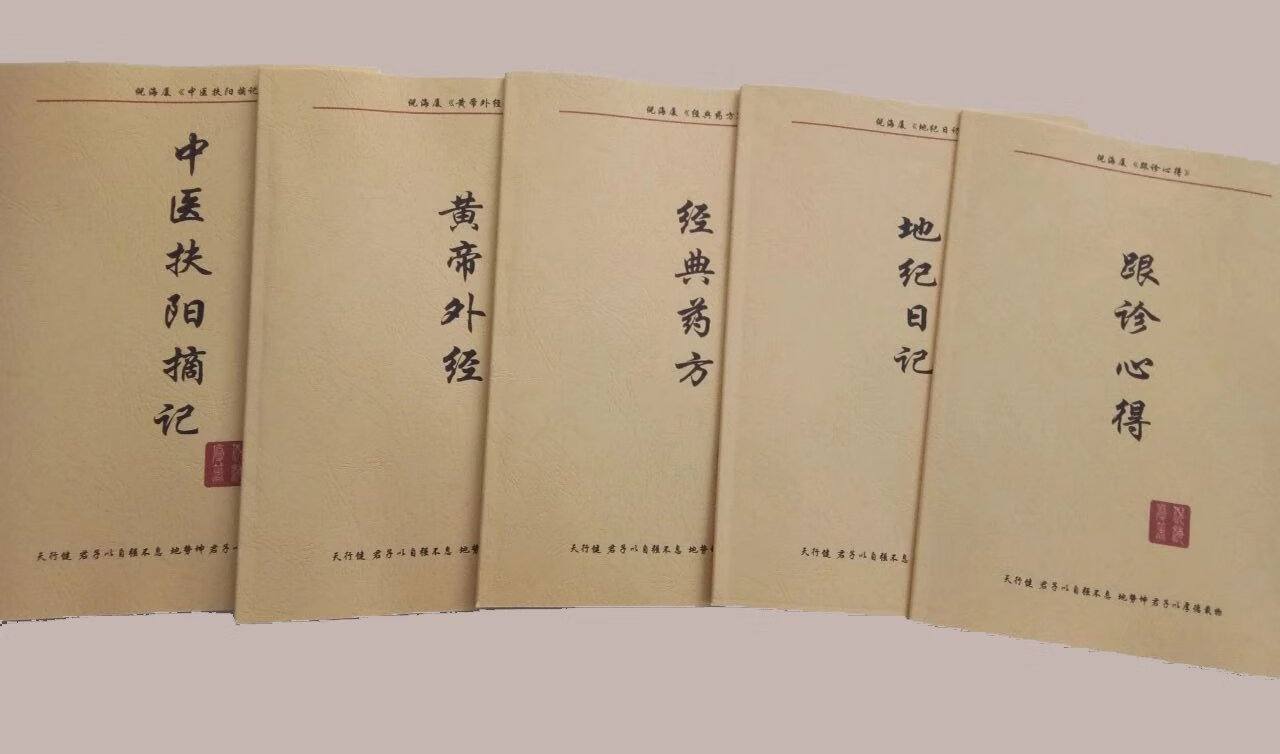 倪海厦《中医扶阳摘记
中医扶阳摘记
天行健 君子以自强不息 地势坤 君子
倪海厦《黄帝外经
黄帝外经
天行健 君子以自强不息 地势
倪海厦《经典药方
经典药方
天行健 君子以自强不息 地势
倪海厦《地纪日记
地纪日记
天行健 君子以自强不息
倪海厦《跟诊心得》
跟诊心得
天行健 君子以自强不息 地势坤 君子以厚德载物